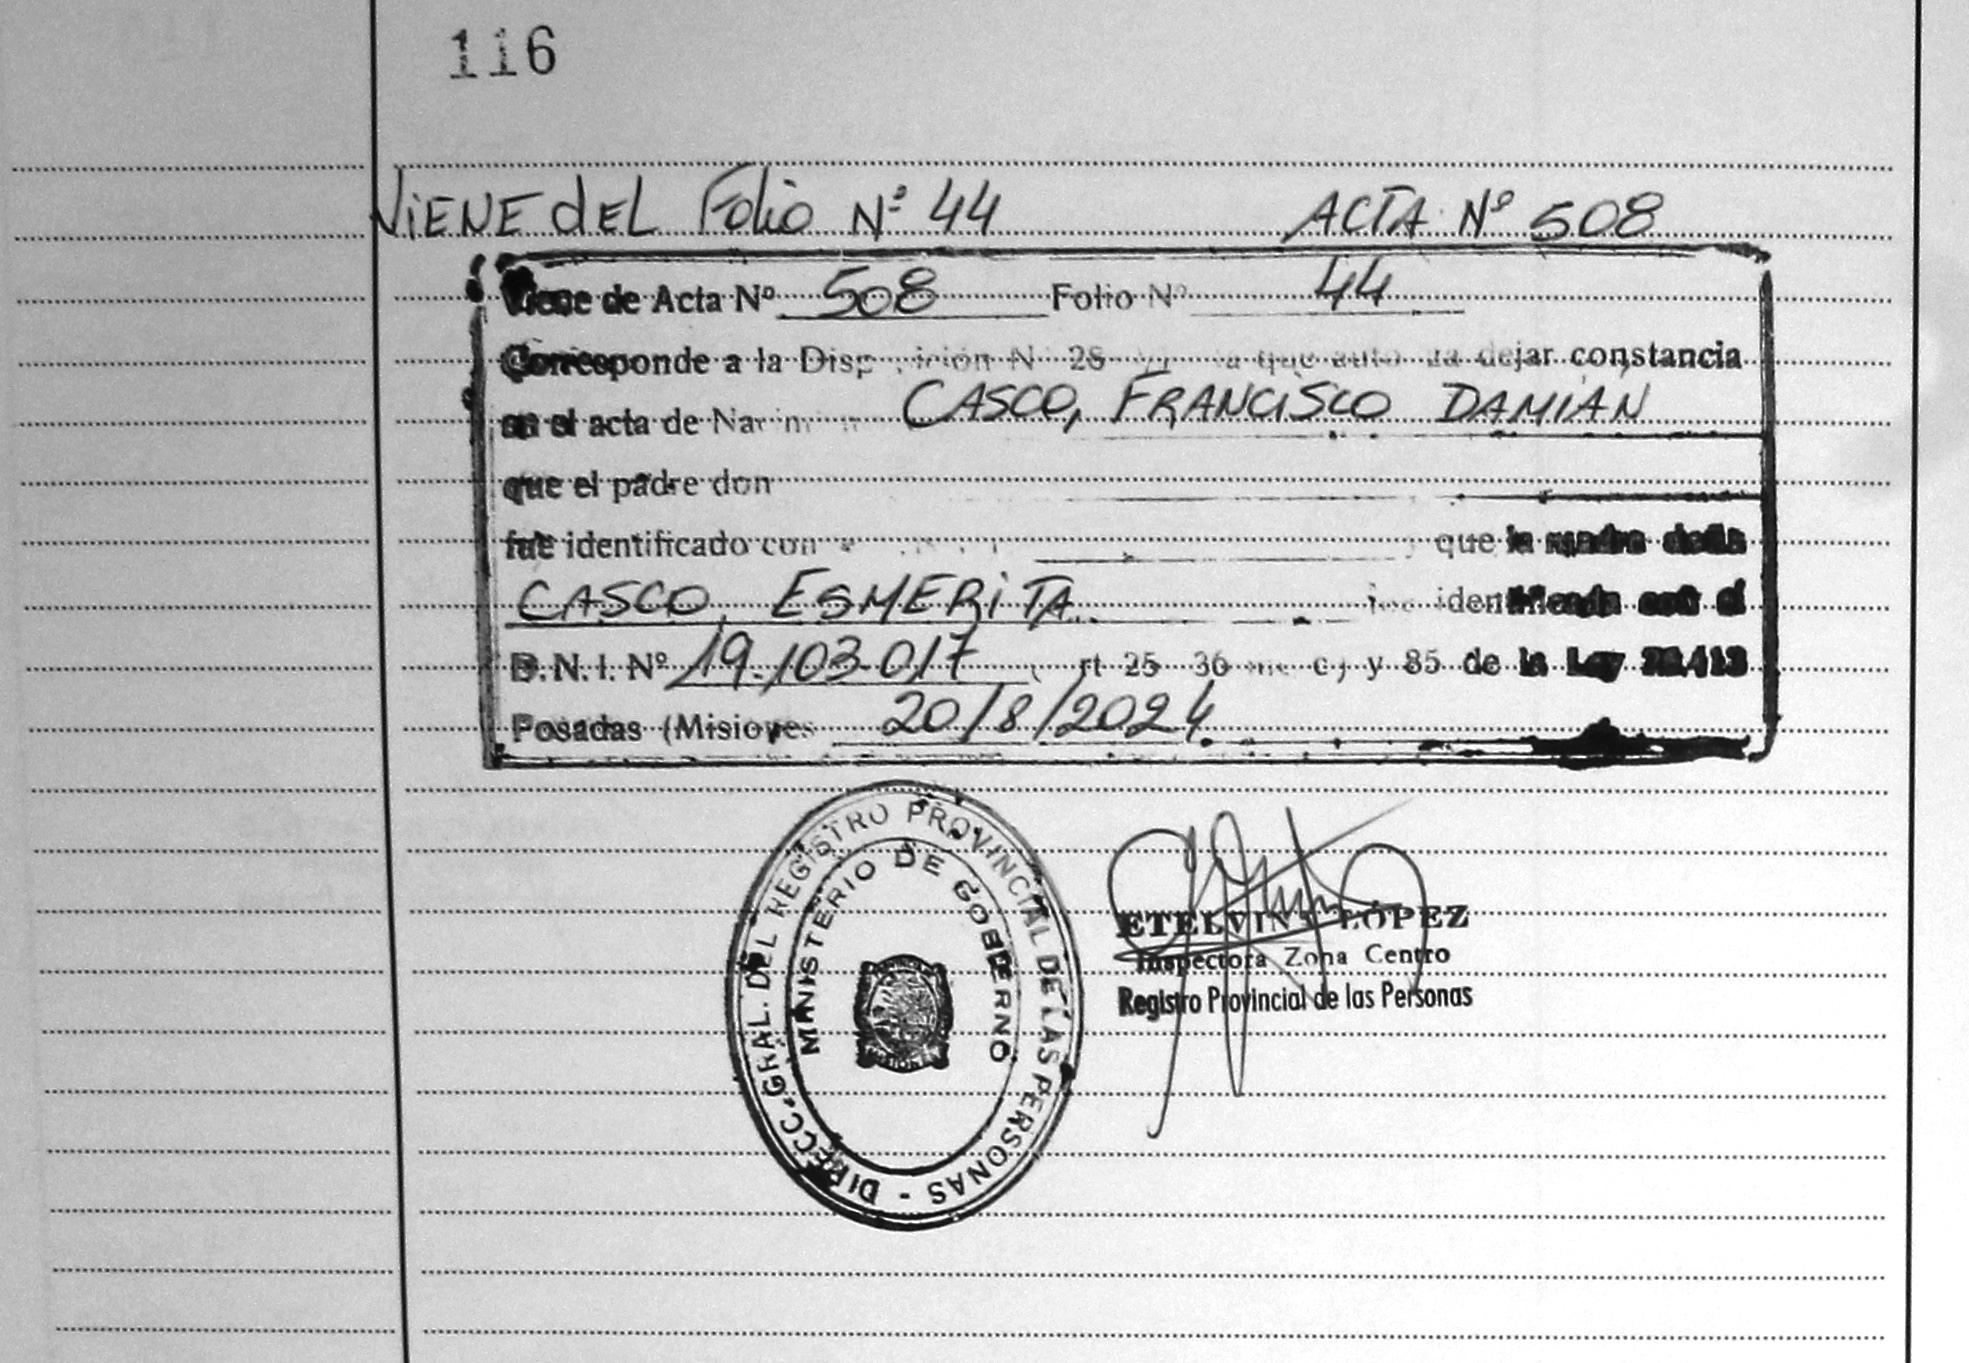 116
VIENE dEL Folio Nº 44 ACTA Nº 508
Viene de Acta Nº 508 Folio Nº 44
Corresponde a la dejar constancia
en el acta de CASCO, FRANCISCO DAMIÁN
que el padre don
fue identificado con que la madre doña
CASCO, ESMERITA identificada con el
D.N.I. Nº 19.103.017 y 85 de la Ley
Posadas (Misiones 20/8/2024
DIRECC. GRAL. DEL REGISTRO PROVINCIAL DE LAS PERSONAS -
MINISTERIO DE GOBIERNO
ETELVINA LÓPEZ
Inspectora Zona Centro
Registro Provincial de las Personas